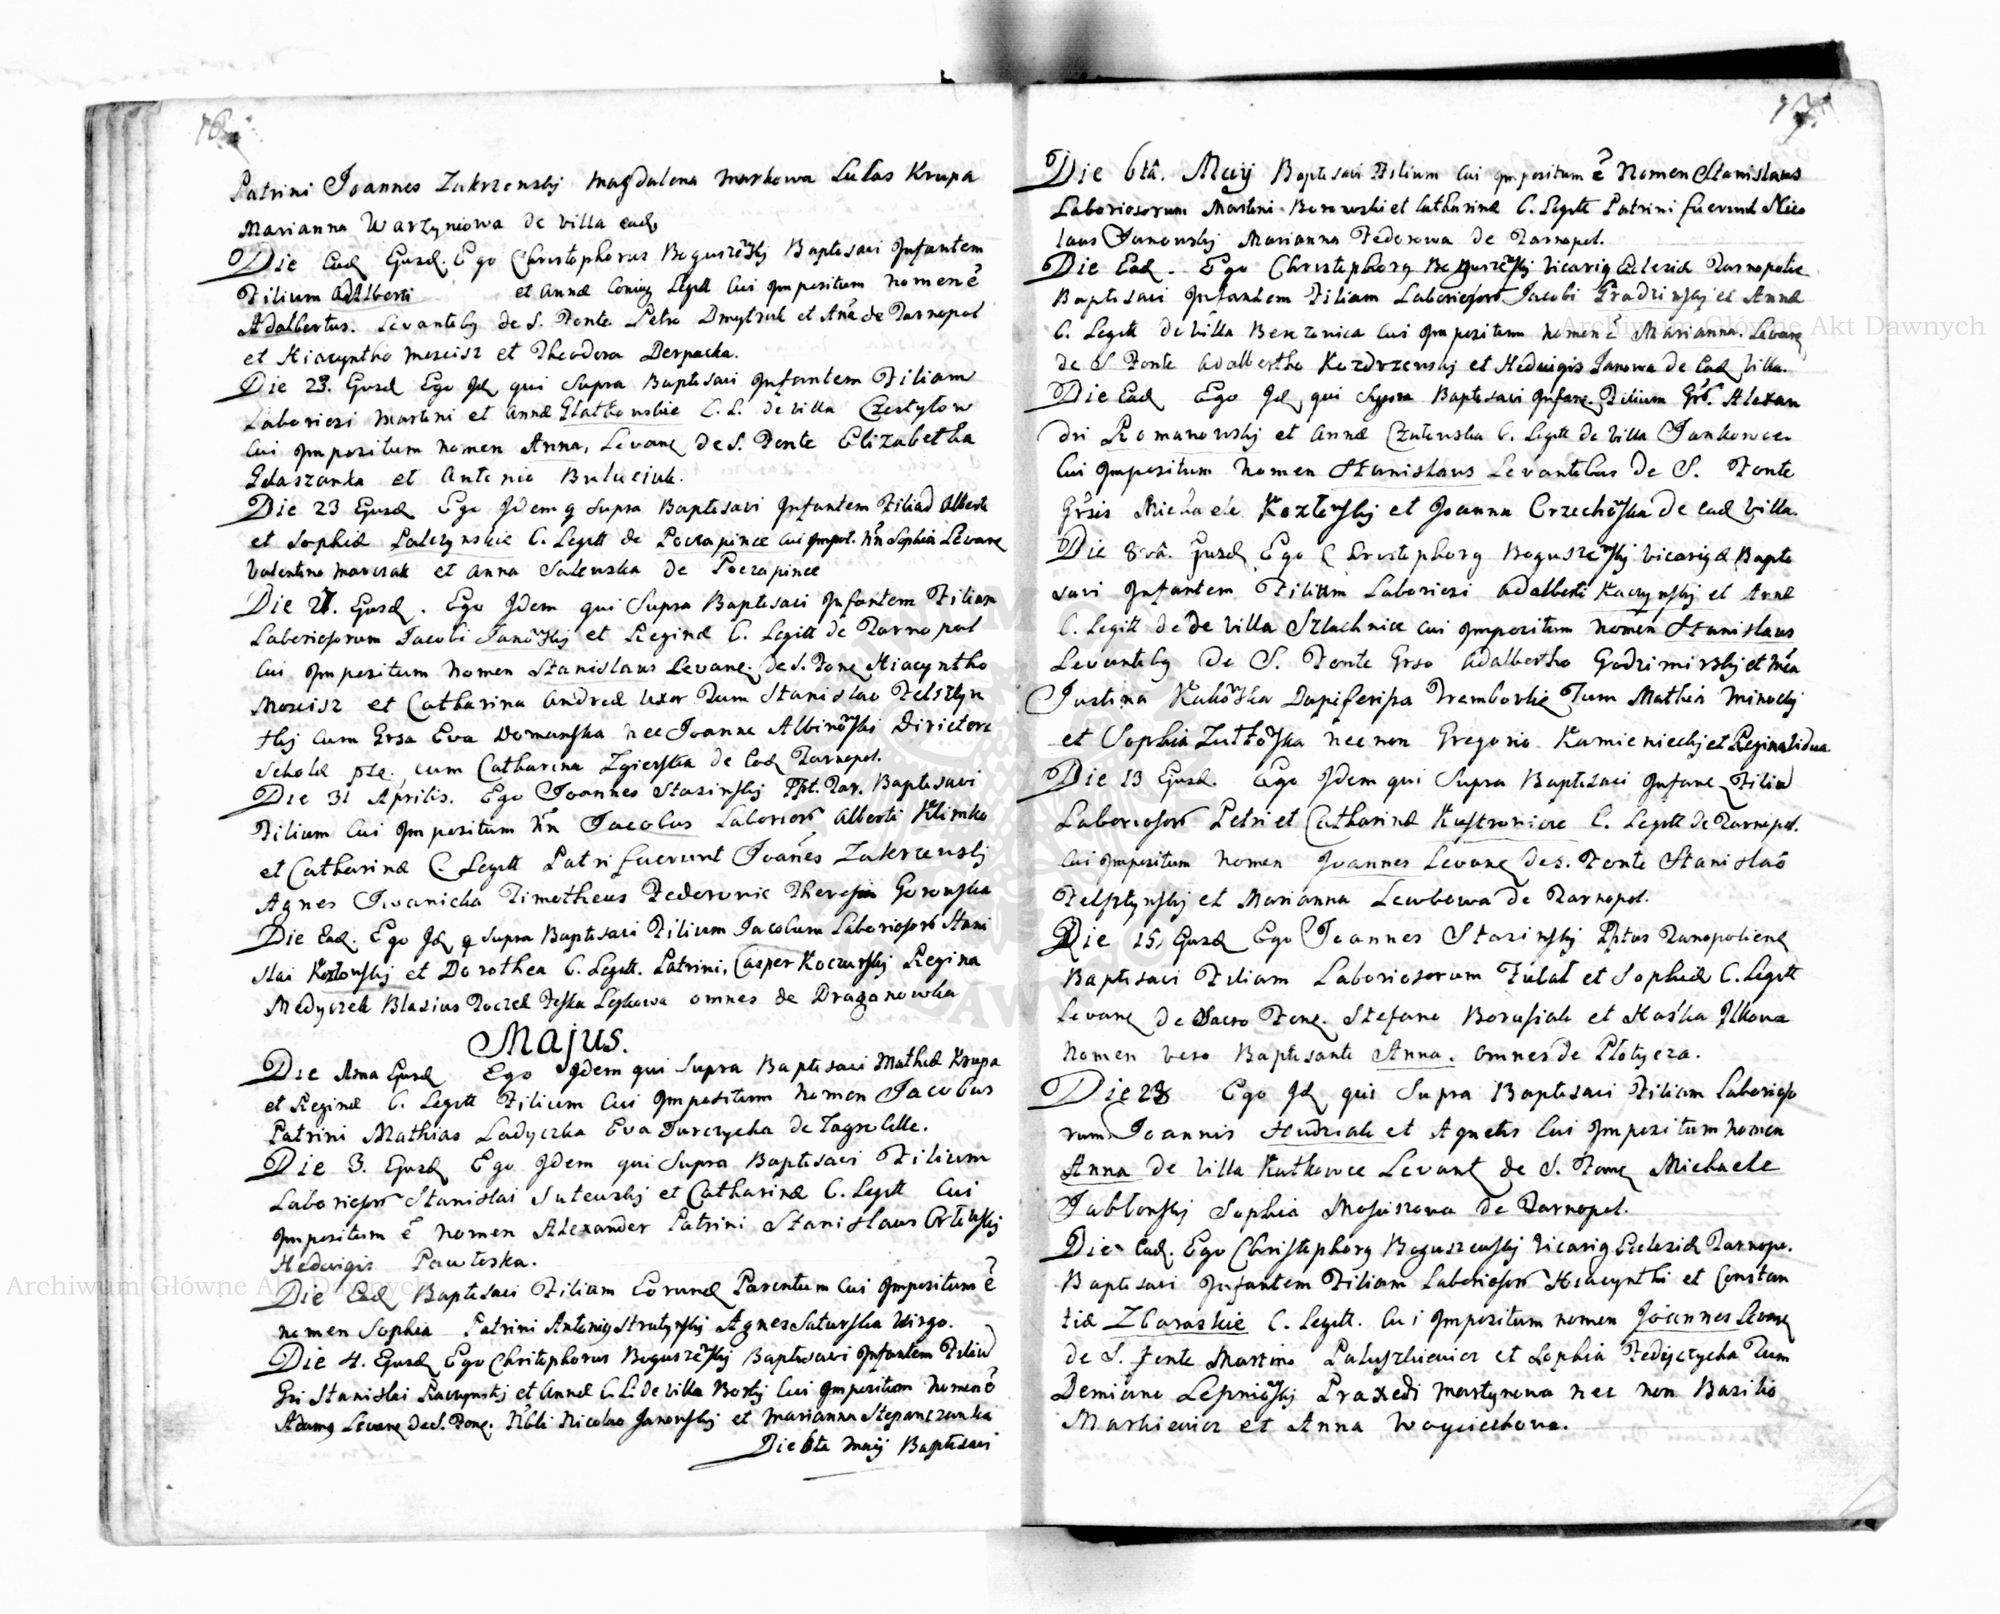 16
Patrini Joannes Zakrzenskj Magdalena Markowa Lucas Krupa
Marianna Wartyniowa de villa ead
Die Ead Ejusd. Ego Christophorus Boguszewskj Baptisavi Infantem
Filium Adalberti et Annæ Coniug Legitt Cui Impositum nomen ẽ
Adalbertus. Levantibq de S. Fonte Petro Dmytruk et Aña de Tarnopol
et Hiacyntho Moscisz et Theodora Derpacka.
Die 23. Ejusd Ego Jd qui Supra Baptisavi Infantem Filiam
Laboriosi Martini et Annæ Glatkowskie C. L. de villa Czestylow
Cui Impositum nomen Anna, Levane de S. Fonte Elizabetha
Gdaszanka et Antonio Buluciuk.
Die 23 Ejusd Ego Jdem q Supra Baptisavi Infantem Filiad Alberti
et Sophiæ Palczynskie C. Legitt de Poczapince cui Impot. Nn Sophia Levane
Valentino Marczak et Anna Salenska de Poczapince
Die 27. Ejusd. Ego Jdem qui Supra Baptisavi Infantem Filium
Laboriosorum Jacobi Janowskj et Reginæ C. Legitt de Tarnopol
Cui Impositum Nomen Stanislaus Levane. de S. Fone Hiacyntho
Moscisz et Catharina Andreæ Uxor Tum Stanislao Felsztyn
skj cum Grsa Eva Domanska nec Joanne Albinowskj Dirictore
Scholæ pte, cum Catharina Zgierska de Ead Tarnopol.
Die 31 Aprilis. Ego Joannes Stasinskj Ppt. Tar. Baptisavi
Filium Cui Impositum Nn Jacobus Laborios Alberti Klimko
et Catharinæ C. Legitt Patri fuerunt Joañes Zakrzenskj
Agnes Iwanicha Timotheus Fedorowic Theresia Gorowska
Die Ead. Ego Jd q Supra Baptisavi Filium Jacobum Laboriosor Stani
slai Kozlowskj et Dorothea C. Legitt. Patrini, Casper Koczurskj Regina
Medyczek Blasius Poczek Feska Leskowa omnes de Draganowka
Majus.
Die Ama Ejusd Ego Jdem qui Supra Baptisavi Mathiæ Krupa
et Reginæ C. Legitt Filium Cui Impositum Nomen Jacobus
Patrini Mathias Ladyczka Eva Jurczycha de Zagrobelle.
Die 3. Ejusd Ego Jdem qui Supra Baptisavi Filium
Laboriosor Stanislai Sutenskj et Catharinæ C. Legitt Cui
Impositum ẽ nomen Alexander Patrini Stanislaus Orlenskj
Hedwigis Pawloska.
Die Ead Baptisavi Filiam Eorund Parentum Cui Impositum ẽ
nomen Sophia Patrini Antoniq Strutynskj Agnes Saturska Virgo.
Die 4. Ejusd Ego Christophorus Boguszewskj Baptisavi Infantem Filiu
Gsi Stanislai Raczynskj et Annæ C. L. De Villa Borkj Cui Impositum Nomen ẽ
Adamq Levane De S. Fone. Nobli Nicolao Janowskj et Marianna Stepanczanka
Die 6ta Maij Baptisavi
17
Die 6tâ. Maij Baptisavi Filium Cui Impositum ẽ Nomen Stanislaus
Laboriosorum Martini Borowski et Catharinæ C. Legitt Patrini fuerunt Nico
laus Janowskj Marianna Fedorowa de Tarnopol.
Die Ead. Ego Christophorq Boguszewskj Vicariq Eclesiæ Tarnopolie
Baptisavi Infantem Filiam Laboriosor Jacobi Gradzinskj et Annæ
C. Legitt de Villa Berezovica Cui Impositum Nomen ẽ Marianna. Levane
de S. Fonte Adalbertho Kozdrzenskj et Hedwigis Janowa de Ead Villa.
Die Ead Ego Jd qui Supra Baptisavi Infane. Filium Grs. Alexan
dri Romanowskj et Annæ Czulenska C. Legitt de Villa Jankowce
Cui Impositum Nomen Stanislaus Levantibus de S. Fonte
Grsis Michaele Kozlowskj et Joanna Orzechowska de ead Villa.
Die 8vâ. Ejusd Ego Christophorq Boguszewskj Vicariq Bapti
savi Infantem Filium Laboriosi Adalberti Kaczynskj et Annæ
C. Legitt de de Villa Szlachnice Cui Impositum Nomen Stanislaus
Levantibq De S. Fonte Grso Adalbertho Godzimirskj et Mca
Justina Kakowska Dapiferissa Tremborlie Tum Mathia Minockj
et Sophia Zulkowska necnon Gregorio Kamienieckj et Regina Vidua
Die 13 Ejusd. Ego Jdem qui Supra Baptisavi Infane Filiu
Laboriosor Petri et Catharinæ Kustroniow C. Legitt de Tarnopol.
Cui Impositum Nomen Joannes Levane de S. Fonte Stanislao
Felsztynskj et Marianna Lewkowa de Tarnopol.
Die 15, Ejusd Ego Joannes Stasinskj Pptus Tanopoliens
Baptisavi Filiam Laboriosorum Fulat et Sophiæ C. Legitt
Levane de Sacro Fone. Stefano Borusiak et Haska Ilkowa
Nomen vero Baptisante Anna. omnes de Plotycza.
Die 28 Ego Jd qui Supra Baptisavi Filiam Laborioso
rum Joannis Hudziak et Agnetis Cui Impositum nomen
Anna de Villa Kutkowce Levant de S. Fone Michaele
Jablonskj Sophia Mosciszowa de Tarnopol.
Die Ead. Ego Christophorq Boguszewskj Vicariq Ecclesiæ Tarnopo.
Baptisavi Infantem Filium Laboriosor Hiacynthi et Constan
tiæ Zbaraskie C. Legitt. Cui Impositum nomen Joannes Levane
de S. Fonte Martino Paluszkiewicz et Sophia Fedyczycha Tum
Demiano Lepniowskj Praxedi Martynowa nec non Basilio
Markiewicz et Anna Woyciechowa.
Archiwum Główne Akt Dawnych
Archiwum Główne Akt Dawnych